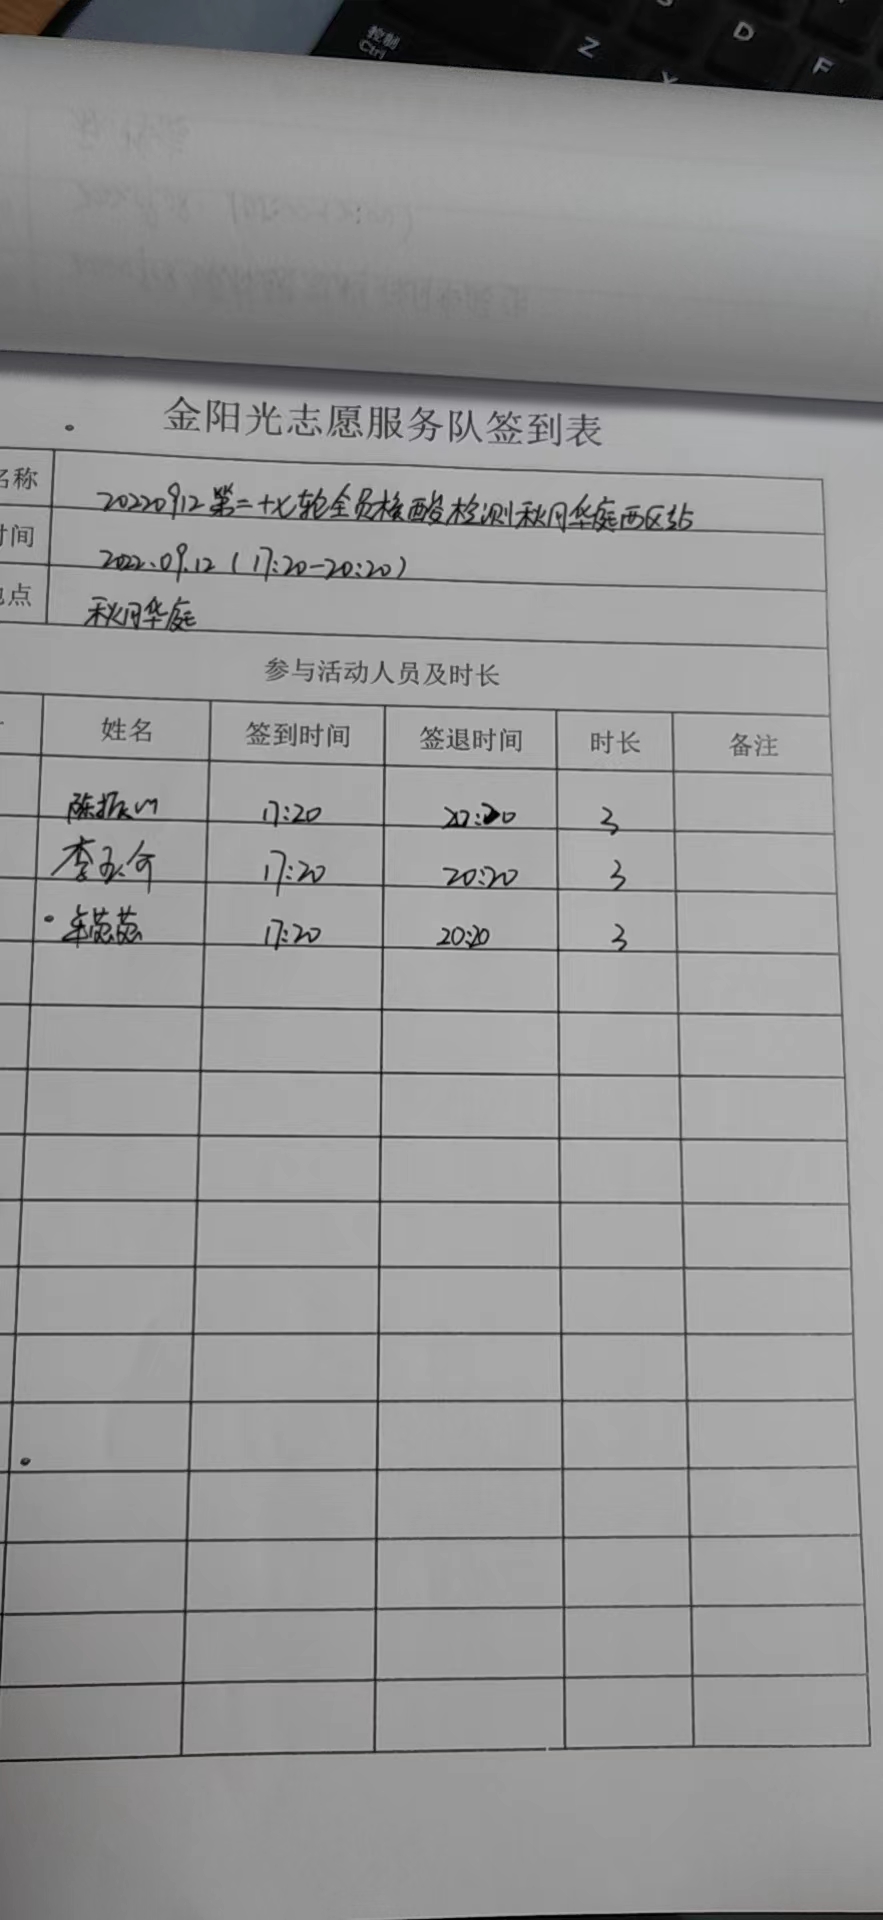 控制
Ctrl
Z
D
F
金阳光志愿服务队签到表
名称 20220912第二十七轮全员核酸检测秋月华庭西区站
时间 2022.09.12(17:20-20:20)
地点 秋月华庭
参与活动人员及时长
姓名 签到时间 签退时间 时长 备注
17:20 20:20 3
17:20 20:20 3
17:20 20:20 3